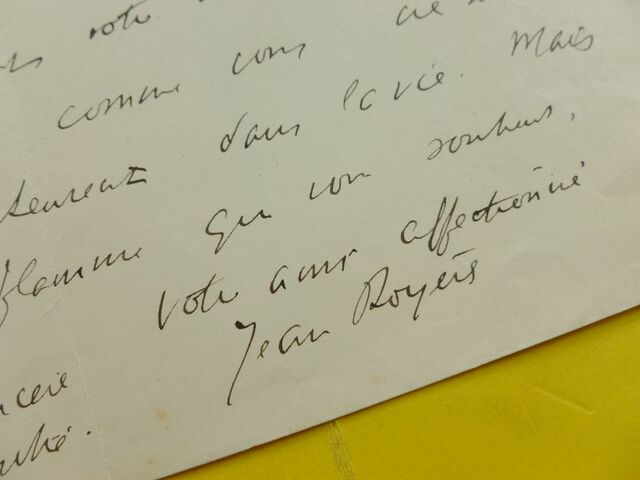 votre
comme vous
dans la vie. Mais
flamme que vous souhaits,
votre ami affectionné
Jean Royère